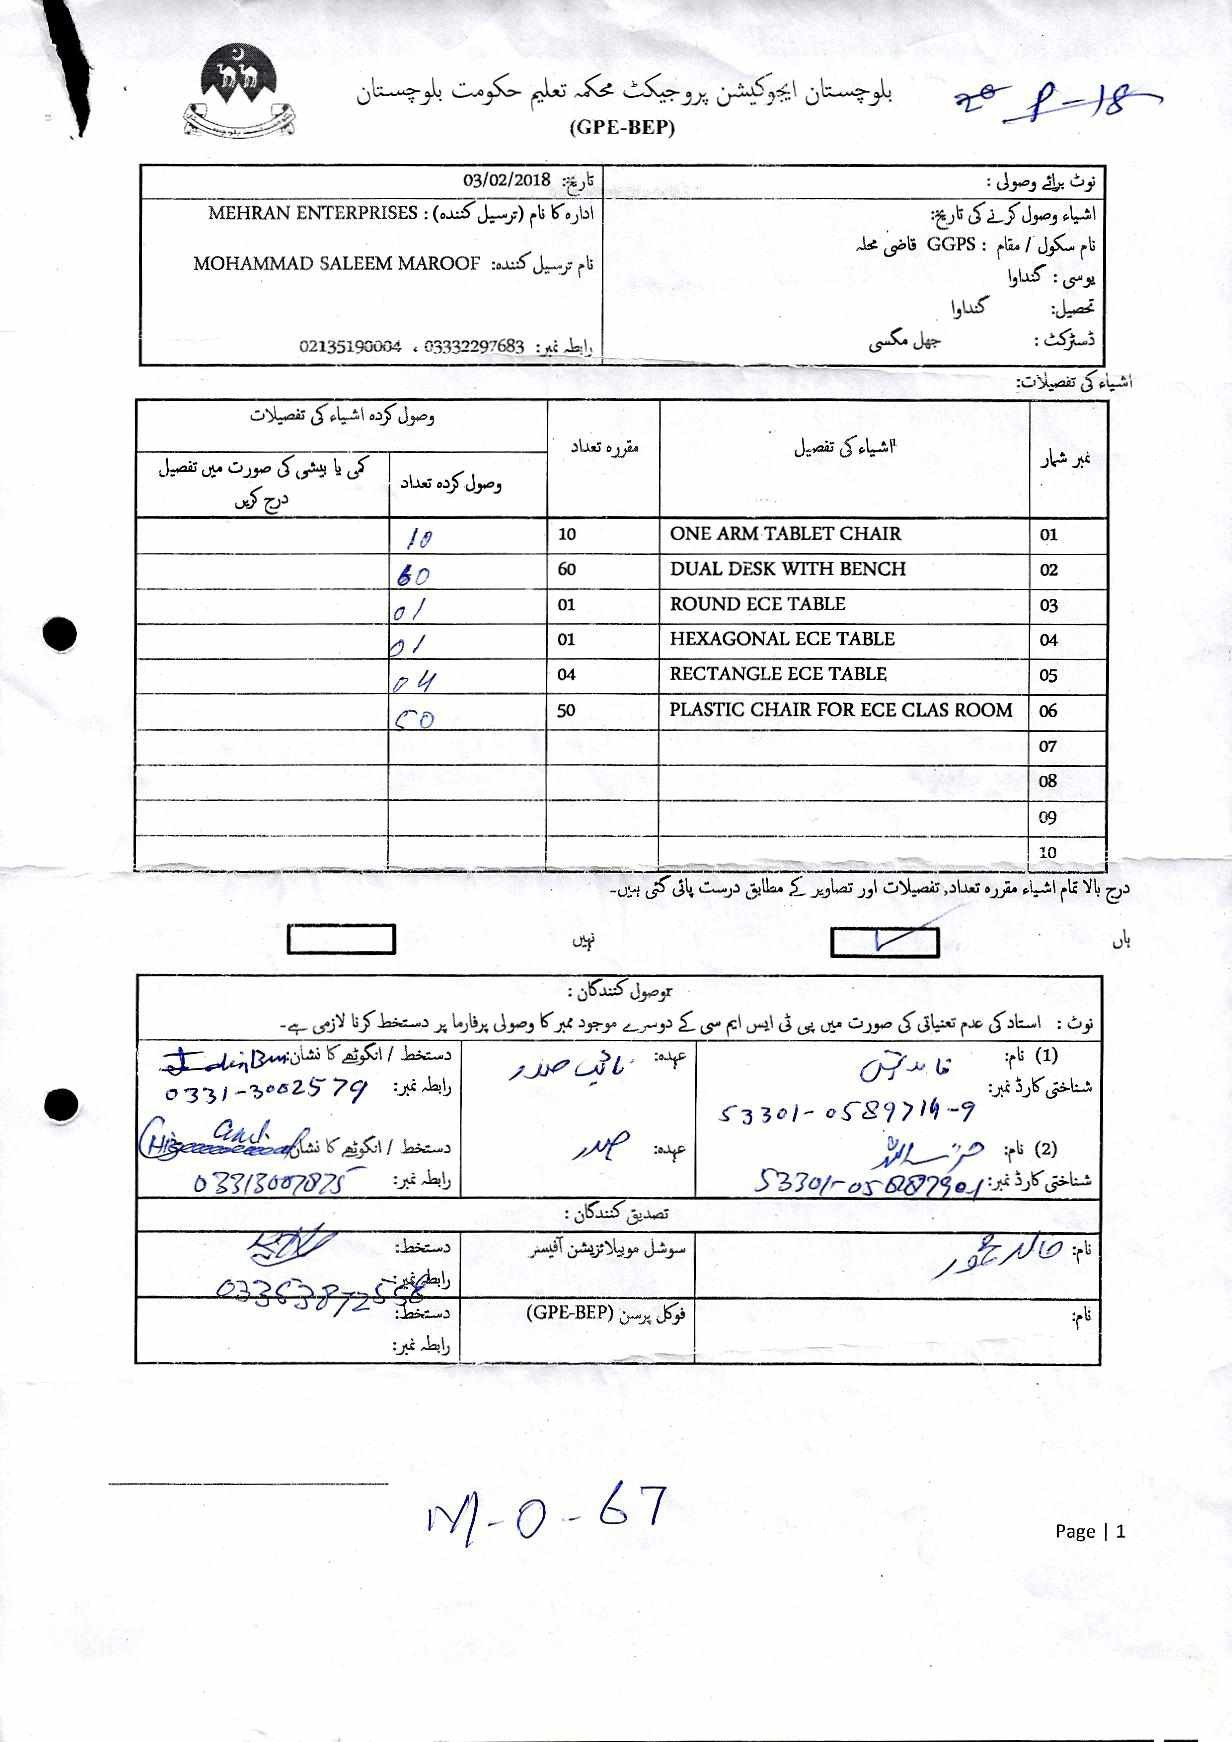 بلوچستان ایجوکیشن پروجیکٹ محکمہ تعلیم حکومت بلوچستان
(GPE-BEP)
نوٹ برائے وصولی :
تاریخ: 03/02/2018
اشیاء وصول کرنے کی تاریخ:
ادارہ کا نام (ترسیل کنندہ) : MEHRAN ENTERPRISES
نام سکول / مقام : GGPS قاضی محلہ
نام ترسیل کنندہ: MOHAMMAD SALEEM MAROOF
یوسی : گنداوا
تحصیل: گنداوا
ڈسٹرکٹ : جھل مگسی
رابطہ نمبر: 03332297683 ، 02135190004
اشیاء کی تفصیلات:
نمبر شمار اشیاء کی تفصیل مقررہ تعداد وصول کردہ اشیاء کی تفصیلات
وصول کردہ تعداد کمی یا بیشی کی صورت میں تفصیل درج کریں
01 ONE ARM TABLET CHAIR 10 10
02 DUAL DESK WITH BENCH 60 60
03 ROUND ECE TABLE 01 01
04 HEXAGONAL ECE TABLE 01 01
05 RECTANGLE ECE TABLE 04 04
06 PLASTIC CHAIR FOR ECE CLAS ROOM 50 50
07
08
09
10
درج بالا تمام اشیاء مقررہ تعداد, تفصیلات اور تصاویر کے مطابق درست پائی گئی ہیں۔
ہاں نہیں
وصول کنندگان :
نوٹ : استاد کی عدم تعیناتی کی صورت میں پی ٹی ایس ایم سی کے دوسرے موجود ممبر کا وصولی پرفارما پر دستخط کرنا لازمی ہے۔
(1) نام: عہدہ: نائب صدر دستخط / انگوٹھے کا نشان:
شناختی کارڈ نمبر: 53301-0589714-9 رابطہ نمبر: 0331-3002579
(2) نام: عہدہ: صدر دستخط / انگوٹھے کا نشان
شناختی کارڈ نمبر: رابطہ نمبر: 03313007875
تصدیق کنندگان :
نام: سوشل موبیلائزیشن آفیسر دستخط:
رابطہ نمبر:
نام: فوکل پرسن (GPE-BEP) دستخط:
رابطہ نمبر:
M-0-67
Page | 1